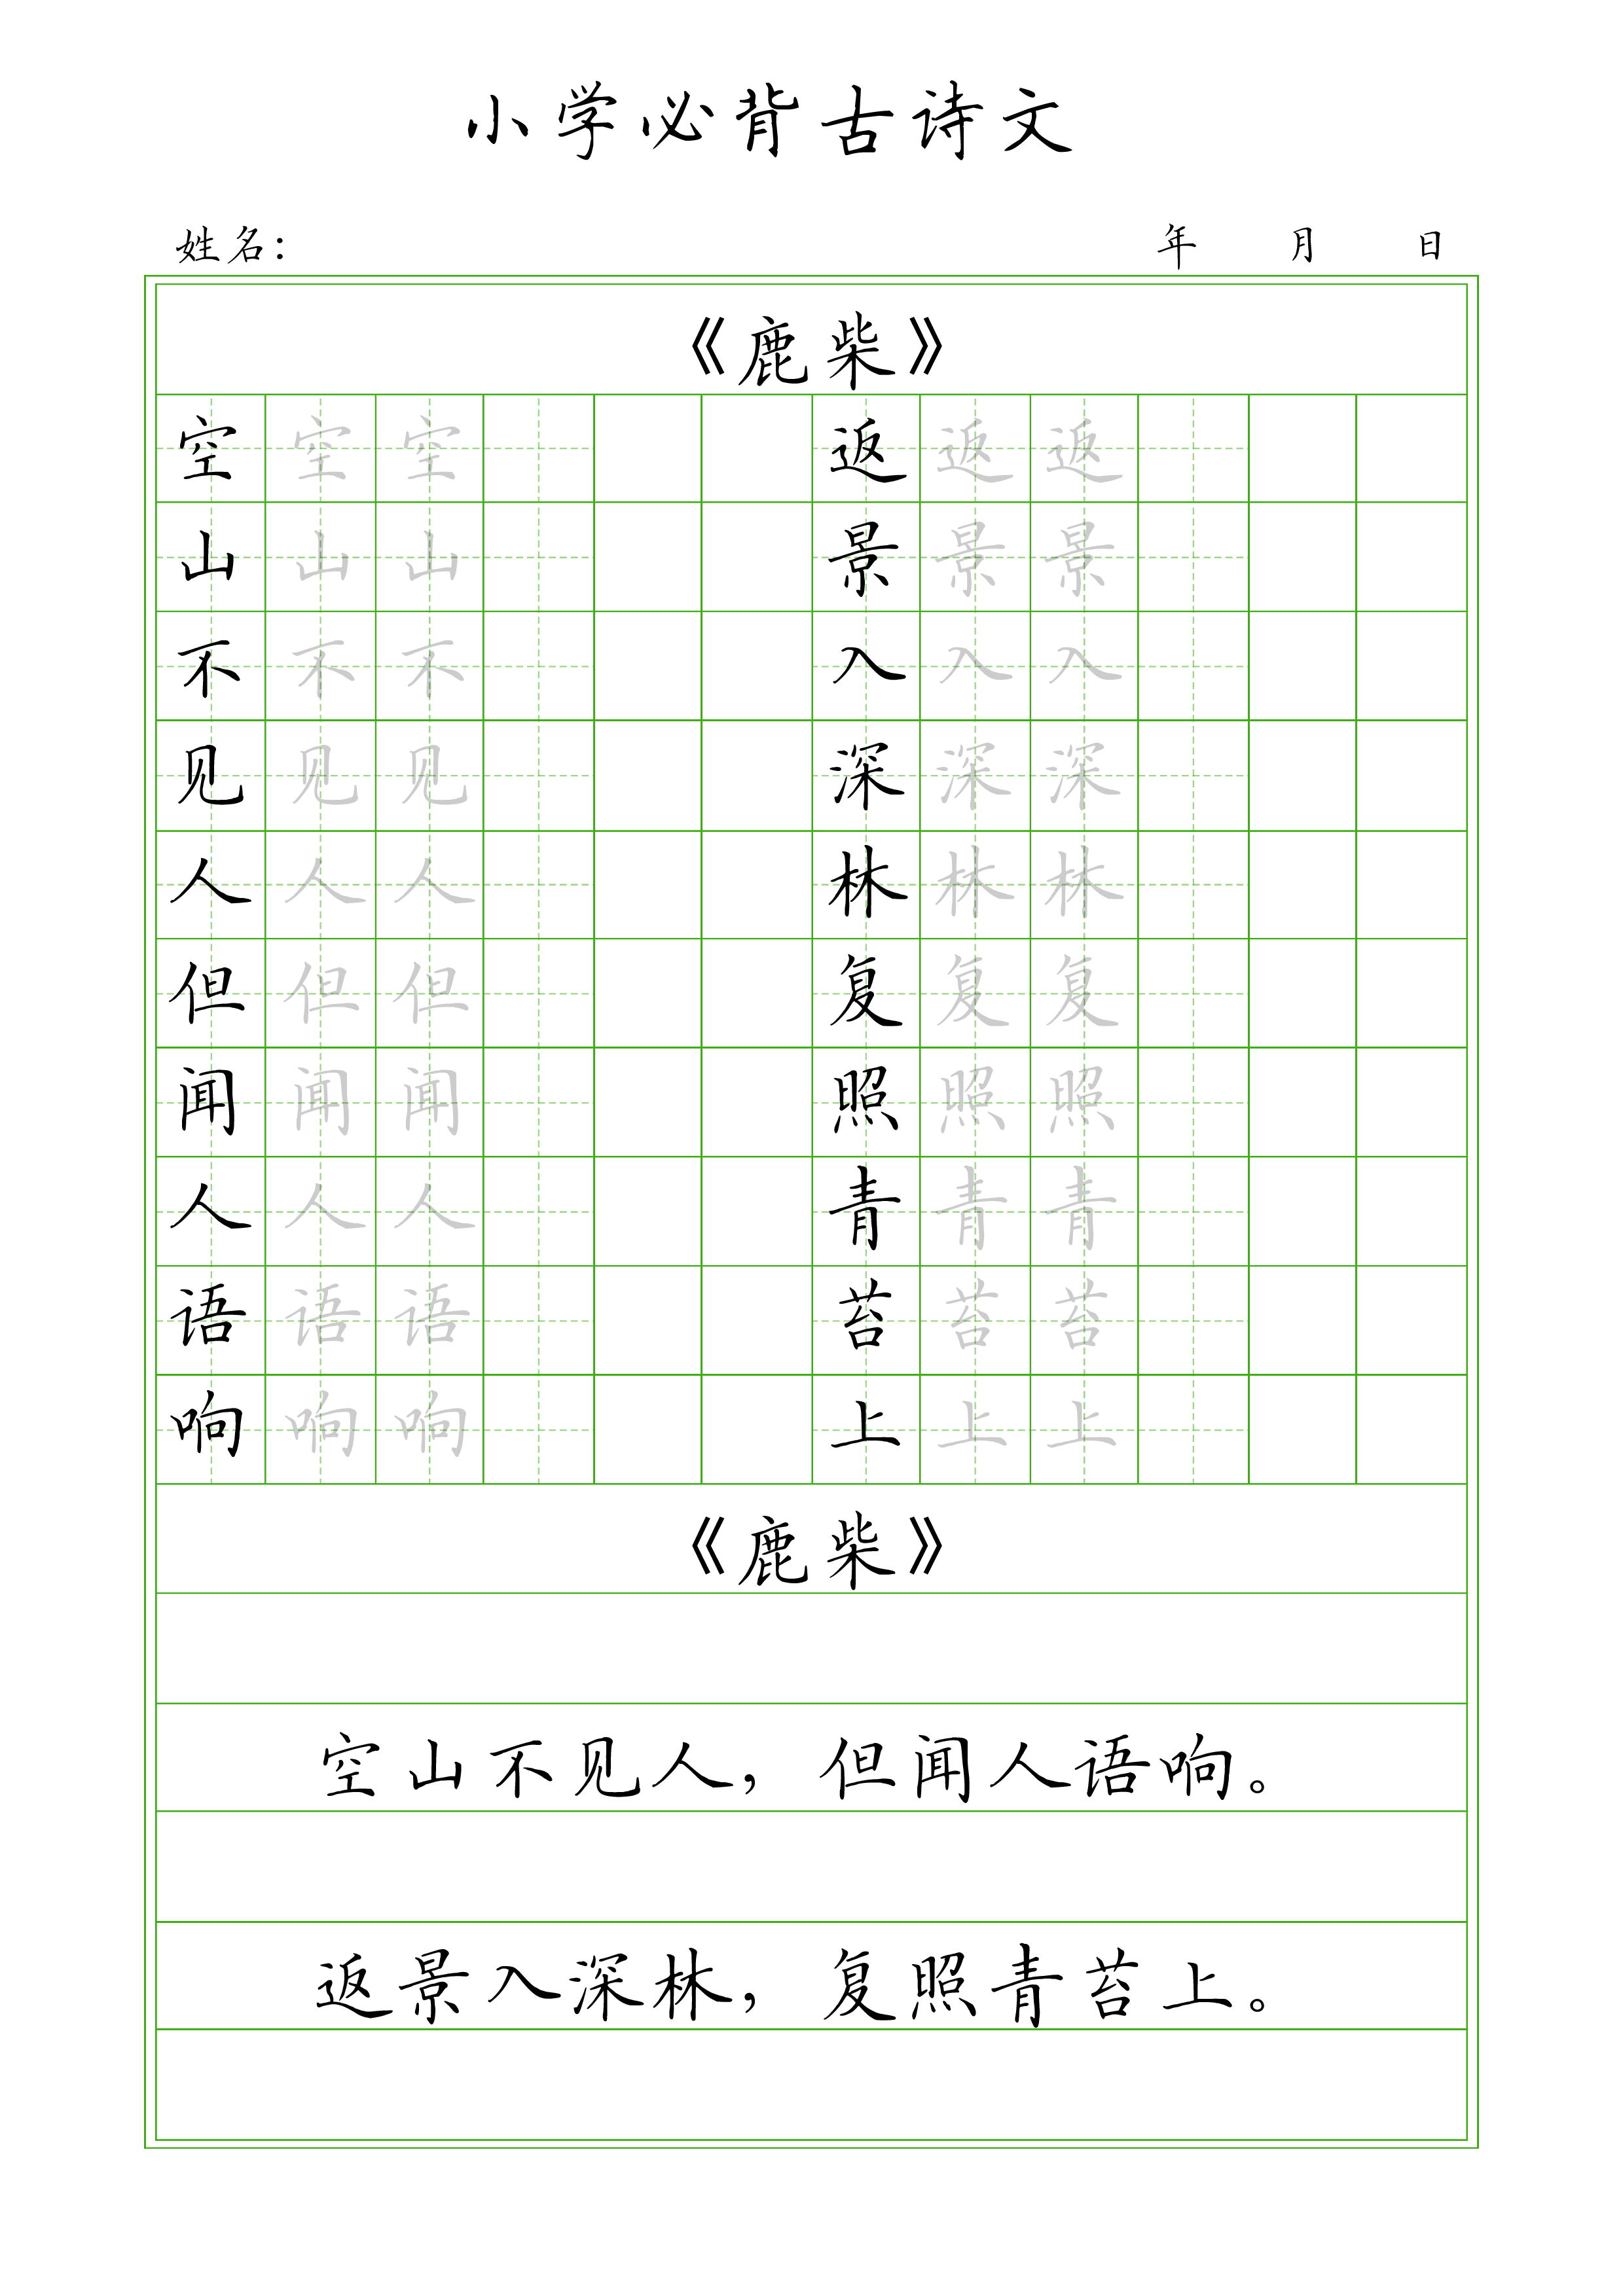 小学必背古诗文
姓名： 年 月 日
《鹿柴》
空 空 空 返 返 返
山 山 山 景 景 景
不 不 不 入 入 入
见 见 见 深 深 深
人 人 人 林 林 林
但 但 但 复 复 复
闻 闻 闻 照 照 照
人 人 人 青 青 青
语 语 语 苔 苔 苔
响 响 响 上 上 上
《鹿柴》
空山不见人，但闻人语响。
返景入深林，复照青苔上。